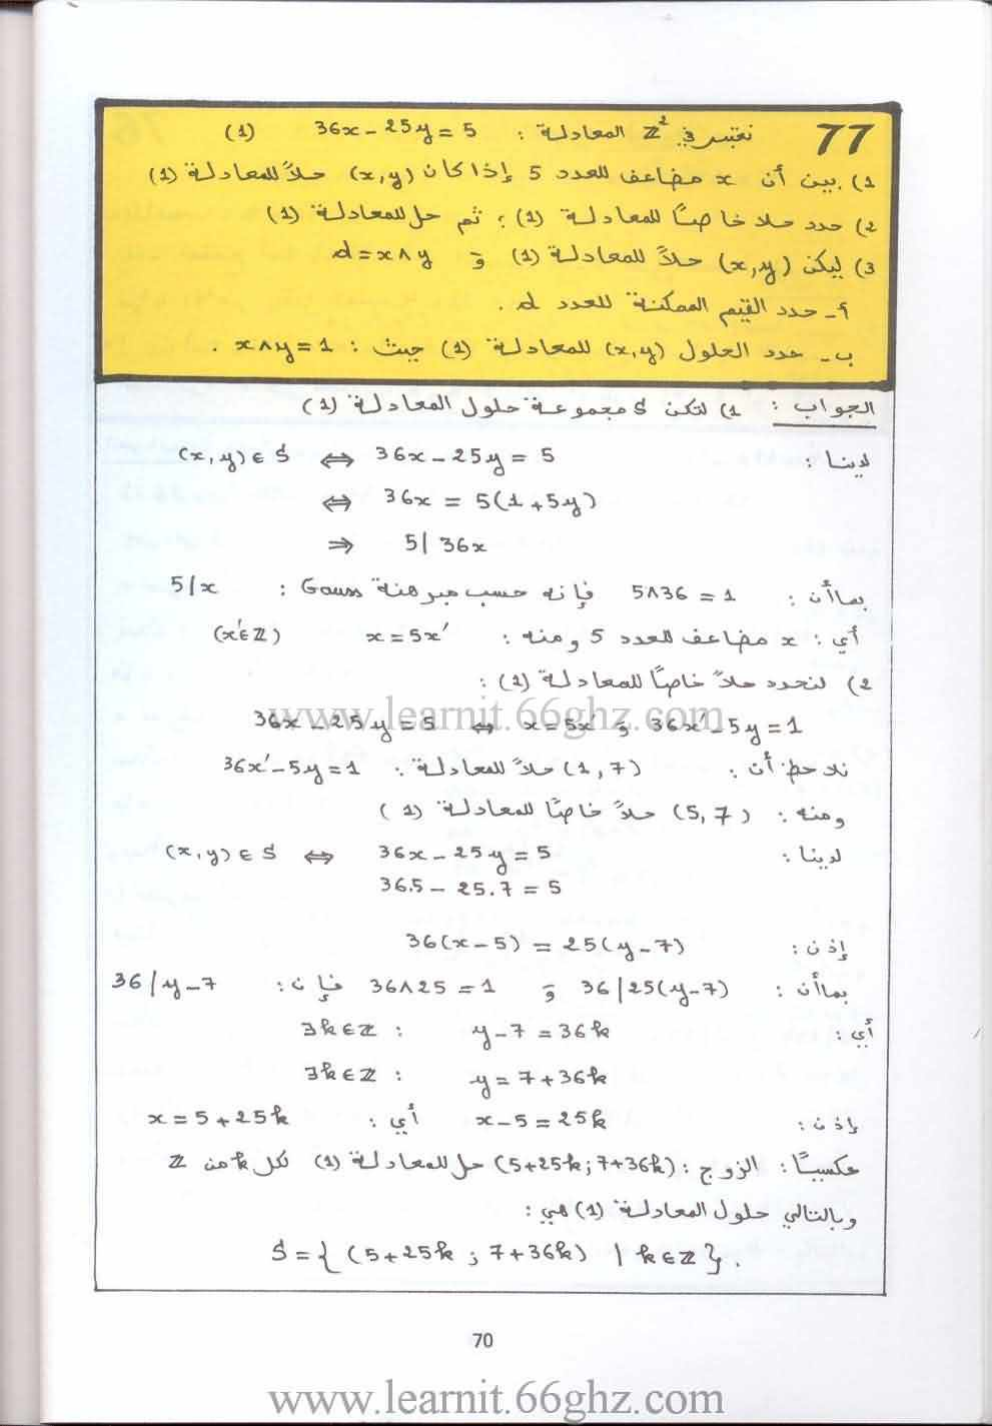 77 نعتبر في Z² المعادلة : 36x - 25y = 5 (1)
1) بين أن x مضاعف للعدد 5 إذا كان (x,y) حلاً للمعادلة (1)
2) حدد حلا خاصًا للمعادلة (1) ؛ ثم حل المعادلة (1)
3) ليكن (x,y) حلاً للمعادلة (1) و d = x∧y
أ- حدد القيم الممكنة للعدد d .
ب- حدد الحلول (x,y) للمعادلة (1) حيث : x∧y = 1 .
الجواب : 1) لتكن S مجموعة حلول المعادلة (1)
لدينا : (x,y) ∈ S ⇔ 36x - 25y = 5
⇔ 36x = 5(1+5y)
⇒ 5| 36x
بما أن : 5∧36 = 1 فإنه حسب مبرهنة Gauss : 5/x
أي : x مضاعف للعدد 5 ومنه : x = 5x' (x'∈Z)
2) لنحدد حلاً خاصًا للمعادلة (1) :
36x - 25y = 5 ⇔ x = 5x' و 36x' - 5y = 1
نلاحظ أن : (1,7) حلاً للمعادلة : 36x' - 5y = 1
ومنه : (5,7) حلاً خاصًا للمعادلة (1)
لدينا : (x,y) ∈ S ⇔ 36x - 25y = 5
36.5 - 25.7 = 5
إذن : 36(x-5) = 25(y-7)
بما أن : 36|25(y-7) و 36∧25 = 1 فإن : 36/y-7
أي : y-7 = 36k : ∃k∈Z
y = 7+36k : ∃k∈Z
إذن : x-5 = 25k أي : x = 5+25k
عكسيًا : الزوج : (5+25k ; 7+36k) حل للمعادلة (1) لكل k من Z
وبالتالي حلول المعادلة (1) هي :
S = { (5+25k ; 7+36k) | k∈Z }.
www.learnit.66ghz.com
70
www.learnit.66ghz.com